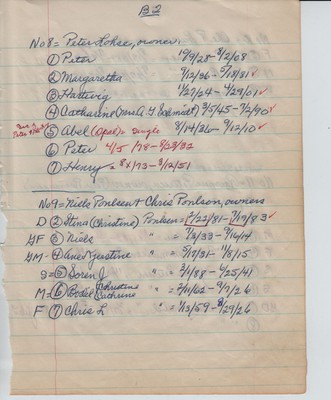 B2
No 8 = Peter Lohse, owner.
① Peter 10/9/28 - 8/2/08
② Margaretha 9/12/36 - 5/18/81 ✓
③ Hartwig 1/27/24 - 4/29/01 ✓
④ Catharina (Mrs A. G. Schmidt) 3/5/45 - 7/2/90 ✓
⑤ Abel (Opal) = Single 8/14/36 - 9/12/10 ✓
⑥ Peter 4/5/78 - 8/23/32
⑦ Henry = 8x/73 - 3/12/51
No 9 = Niels Poulsen & Chris Poulson, owners
D ② Stina (Christine) Poulsen = 1/22/81 - 7/17/83 ✓
GF ③ Niels " = 7/3/33 - 9/16/14
GM - ④ Ane Justine " = 5/17/31 - 11/8/15
S = ⑤ Soren J " = 3/1/88 - 4/25/41
M = ⑥ Bodel Christine Cathrine " = 2/11/62 - 9/7/26
F ⑦ Chris L " = 1/13/59 - 8/29/26